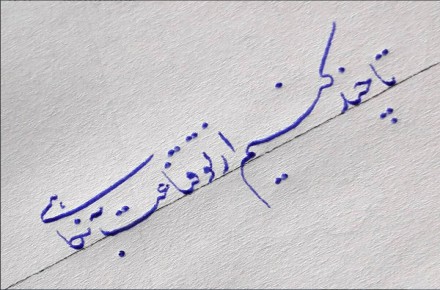 تا چند کنیم از تو قناعت به نگاهی